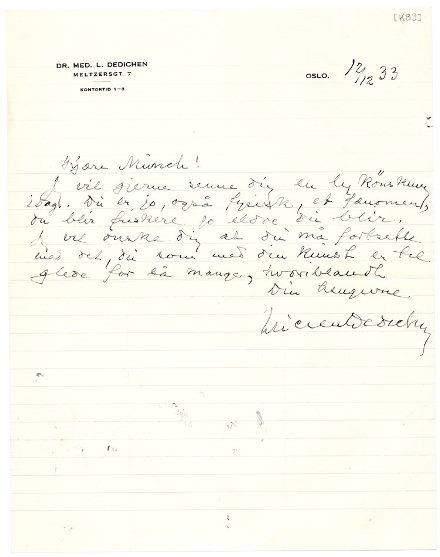 [K83]
DR. MED. L. DEDICHEN
MELTZERSGT. 7
KONTORTID 1-3
OSLO. 12/12 33
Kjære Munch!
Jeg vil gjerne sende dig en
idag. Du er jo, også fysisk, et fænomen,
du blir friskere jo eldre du blir.
Jeg vil ønske dig at du må fortsette
med det, du som med din kunst er til
glede for så mange, hvoriblandt
Din hengivne
Lucien Dedichen